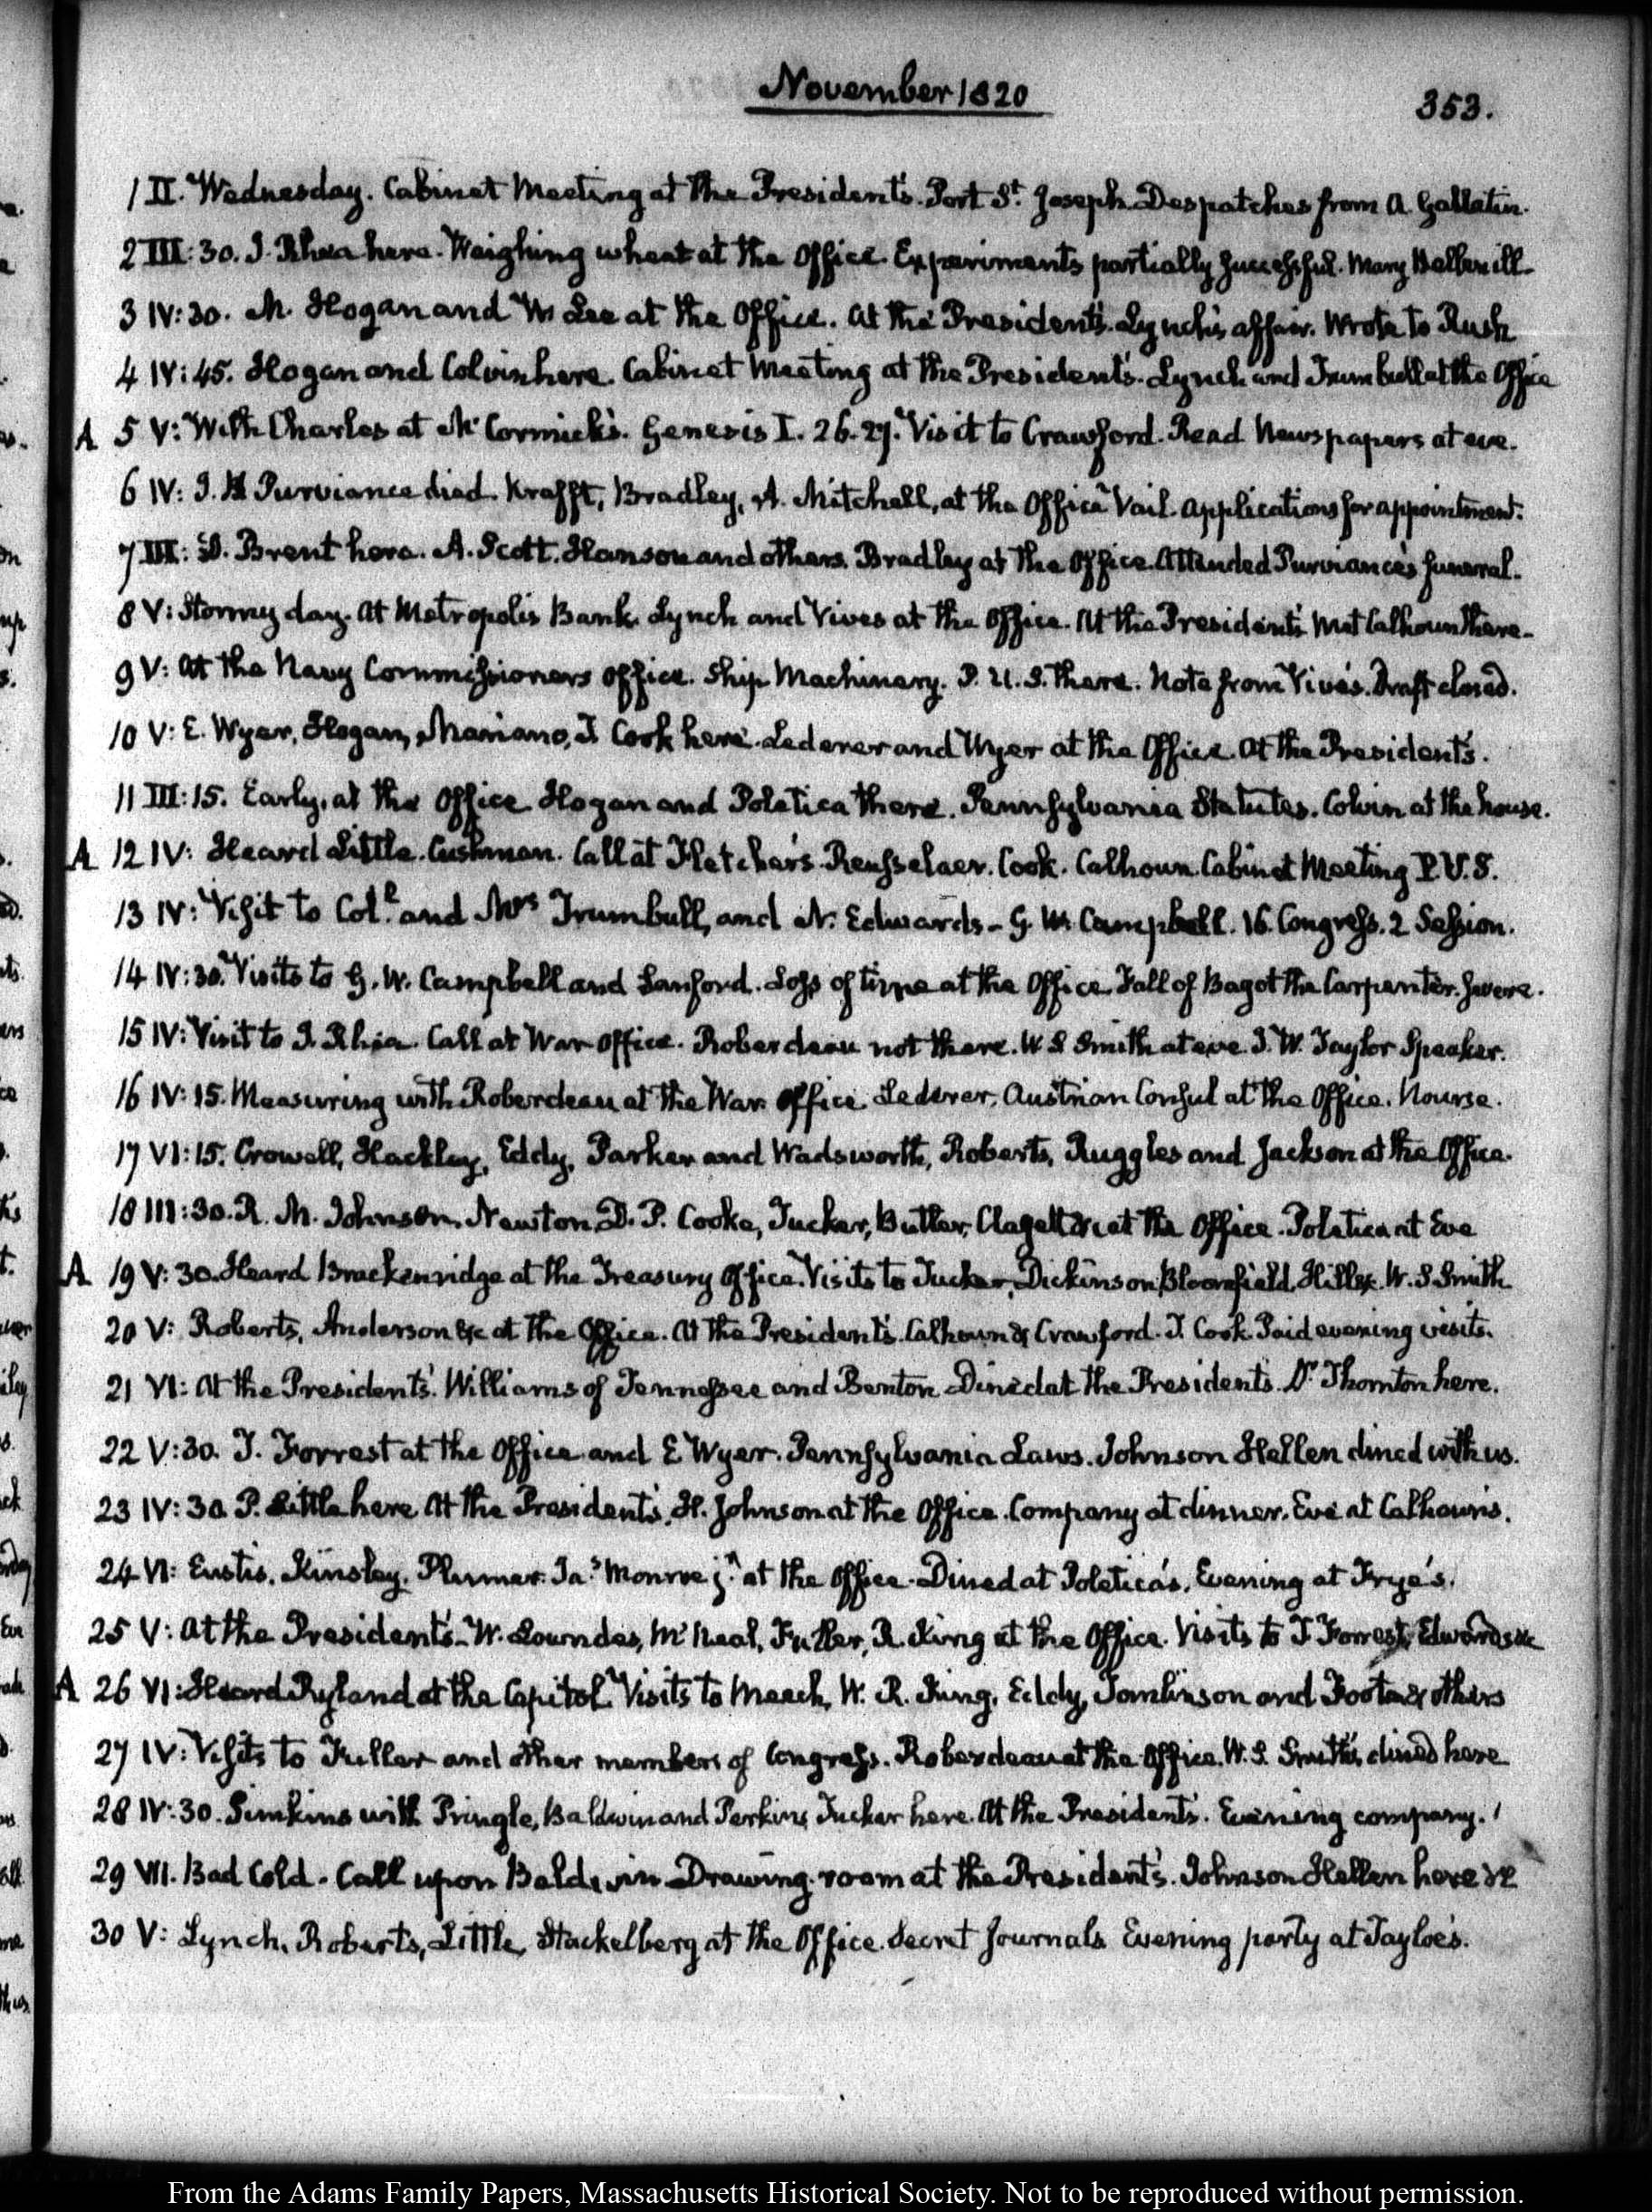 November 1820
353.
1 II. Wednesday. Cabinet Meeting at the President's. Port St. Joseph. Despatches from A. Gallatin.
2 III:30. J. Rhea here. Weighing wheat at the Office. Experiments partially successful. Mary Hellen ill.
3 IV:30. M. Hogan and W Lee at the Office. At the President's. Lynch's affair. Wrote to Rush
4 IV:45. Hogan and Colvin here. Cabinet Meeting at the President's. Lynch and Trumbull at the Office
A 5 V: With Charles at McCormick's. Genesis I. 26. 27. Visit to Crawford. Read Newspapers at eve.
6 IV: J. H Purviance died. Krafft, Bradley, A. Mitchell, at the Office Vail. Applications for appointment.
7 III: D. Brent here. A. Scott. Hanson and others. Bradley at the Office. Attended Purviance's funeral.
8 V: Stormy day. At Metropolis Bank. Lynch and Vives at the Office. At the President's Met Calhoun there.
9 V: At the Navy Commissioners office. Ship Machinery. P. U. S. there. Note from Vives. Draft closed.
10 V: E. Wyer, Hogan, Mariano, J. Cook here. Lederer and Wyer at the Office. At the President's.
11 III:15. Early, at the Office Hogan and Poletica there. Pennsylvania Statutes. Colvin at the house.
A 12 IV: Heard Little. Cushman. Call at Fletcher's. Rensselaer. Cook. Calhoun. Cabinet Meeting P. U. S.
13 IV: Visit to Coll. and Mrs Trumbull, and N. Edwards - G. W. Campbell. 16. Congress. 2 Session.
14 IV:30. Visits to G. W. Campbell and Sanford. Loss of time at the Office. Fall of Bagot the Carpenter. Severe.
15 IV: Visit to J. Rhea. Call at War office. Roberdeau not there. W. S Smith at eve. J. W. Taylor Speaker.
16 IV:15. Measuring with Roberdeau at the War office. Lederer, Austrian Consul at the Office. Nourse.
17 VI:15. Crowell, Hackley, Eddy, Parker and Wadsworth, Roberts, Ruggles and Jackson at the Office.
18 III:30. R. M. Johnson, Newton, D. P. Cooke, Tucker, Butler, Clagett &c at the Office. Poletica at Eve
A 19 V:30. Heard Brackenridge at the Treasury Office. Visits to Tucker, Dickinson, Bloomfield, Hill &c. W. S Smith
20 V: Roberts, Anderson &c at the Office. At the President's. Calhoun & Crawford. J. Cook. Paid evening visits.
21 VI: At the President's. Williams of Tennessee and Benton. Dined at the President's. Dr. Thornton here.
22 V:30. J. Forrest at the Office and E Wyer. Pennsylvania Laws. Johnson Hellen dined with us.
23 IV:30. P. Little here. At the President's. H. Johnson at the Office. Company at dinner. Eve at Calhoun's.
24 VI: Eustis, Kinsley, Plumer. Jas. Monroe jr. at the Office. Dined at Poletica's. Evening at Frye's.
25 V: At the President's. W. Lowndes, McNeal, Fuller, R. King at the Office. Visits to J Forrest, Edwards &c
A 26 VI: Heard Ryland at the Capitol. Visits to Meech, W. R. King, Eddy, Tomlinson and Foot & others
27 IV: Visits to Fuller and other members of Congress. Roberdeau at the Office. W. S. Smith's dined here
28 IV:30. Simkins with Pringle, Baldwin and Perkins Tucker here. At the President's. Evening company.
29 VII. Bad Cold. Call upon Baldwin Drawing room at the President's. Johnson Hellen here &c
30 V: Lynch, Roberts, Little, Stackelberg at the Office. Secret Journals. Evening party at Tayloe's.
From the Adams Family Papers, Massachusetts Historical Society. Not to be reproduced without permission.